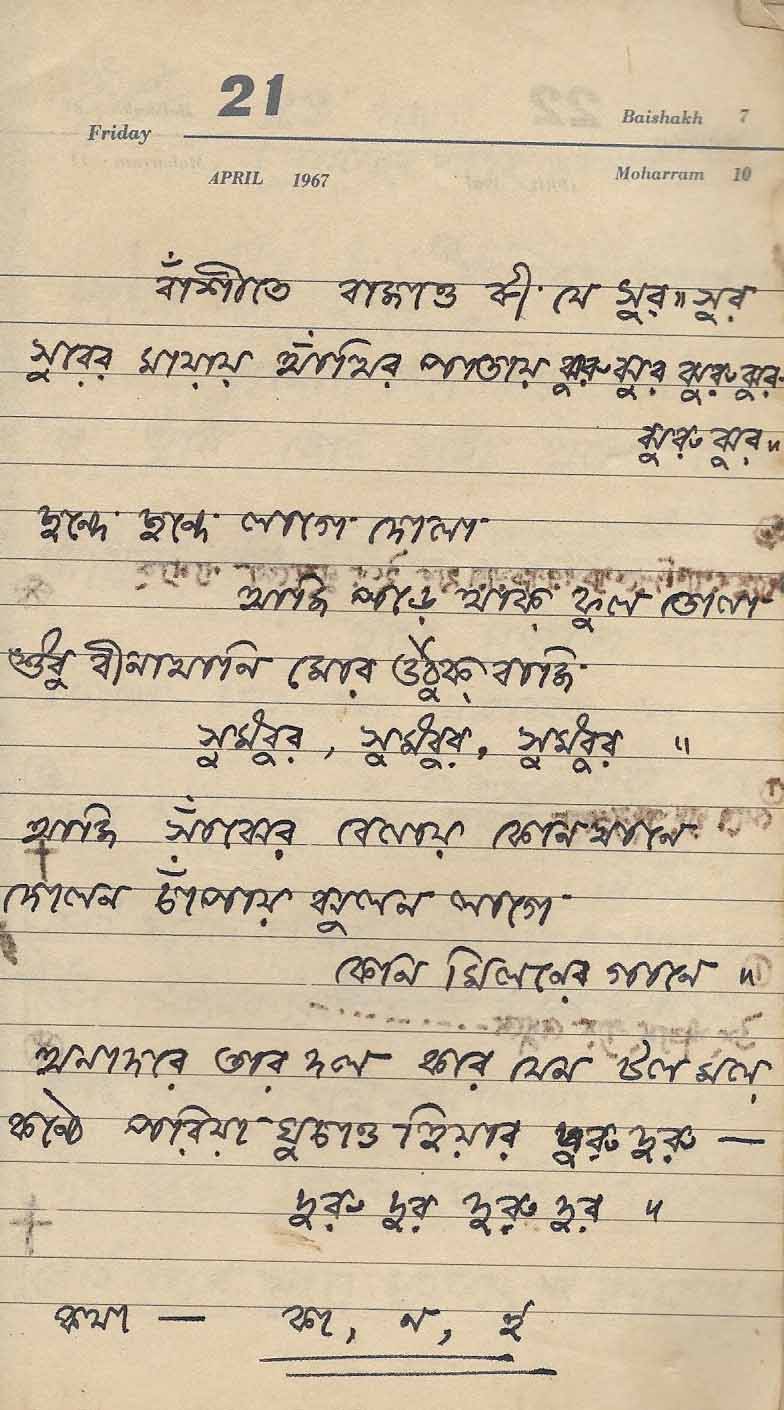 21
Friday
Baishakh 7
APRIL 1967
Moharram 10
বাঁশীতে বাজাও কী যে সুর॥ সুর
সুরের মায়ায় আঁখির পাতায় ঝুরু ঝুর ঝুরু ঝুর
ঝুরু ঝুর॥
ছন্দে ছন্দে লাগে দোলা
আজি পড়ে থাক ফুল তোলা
শুধু বীনাখানি মোর উঠুক বাজি
সুমধুর, সুমধুর, সুমধুর ॥
আজি সাঁঝের বেলায় কোন খানে
দোলন চাঁপায় ঝুলন লাগে
কোন মিলনের গানে ॥
অনাদরে তার দল করে যেন টলমল
কন্ঠে পরিয়া ঘুচাও হিয়ার দুরু দুরু —
দুরু দুর দুরু দুর ॥
কথা — কা, ন, ই